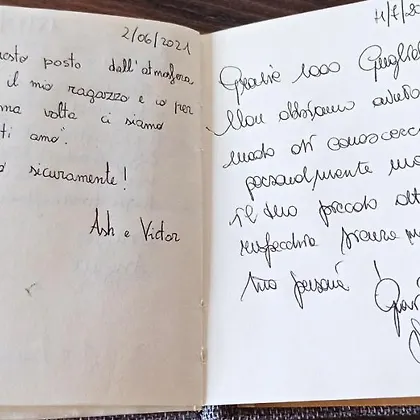 2/06/2021
uesto posto dall'atmosfera
il mio ragazzo e io per
ma volta ci siamo
ti amo".
sicuramente!
Ash e Victor
Grazie 1000 Guglie
Non abbiamo avuto
modo di conoscerci
personalmente ma
il tuo piccolo
rispecchia
tua persona!